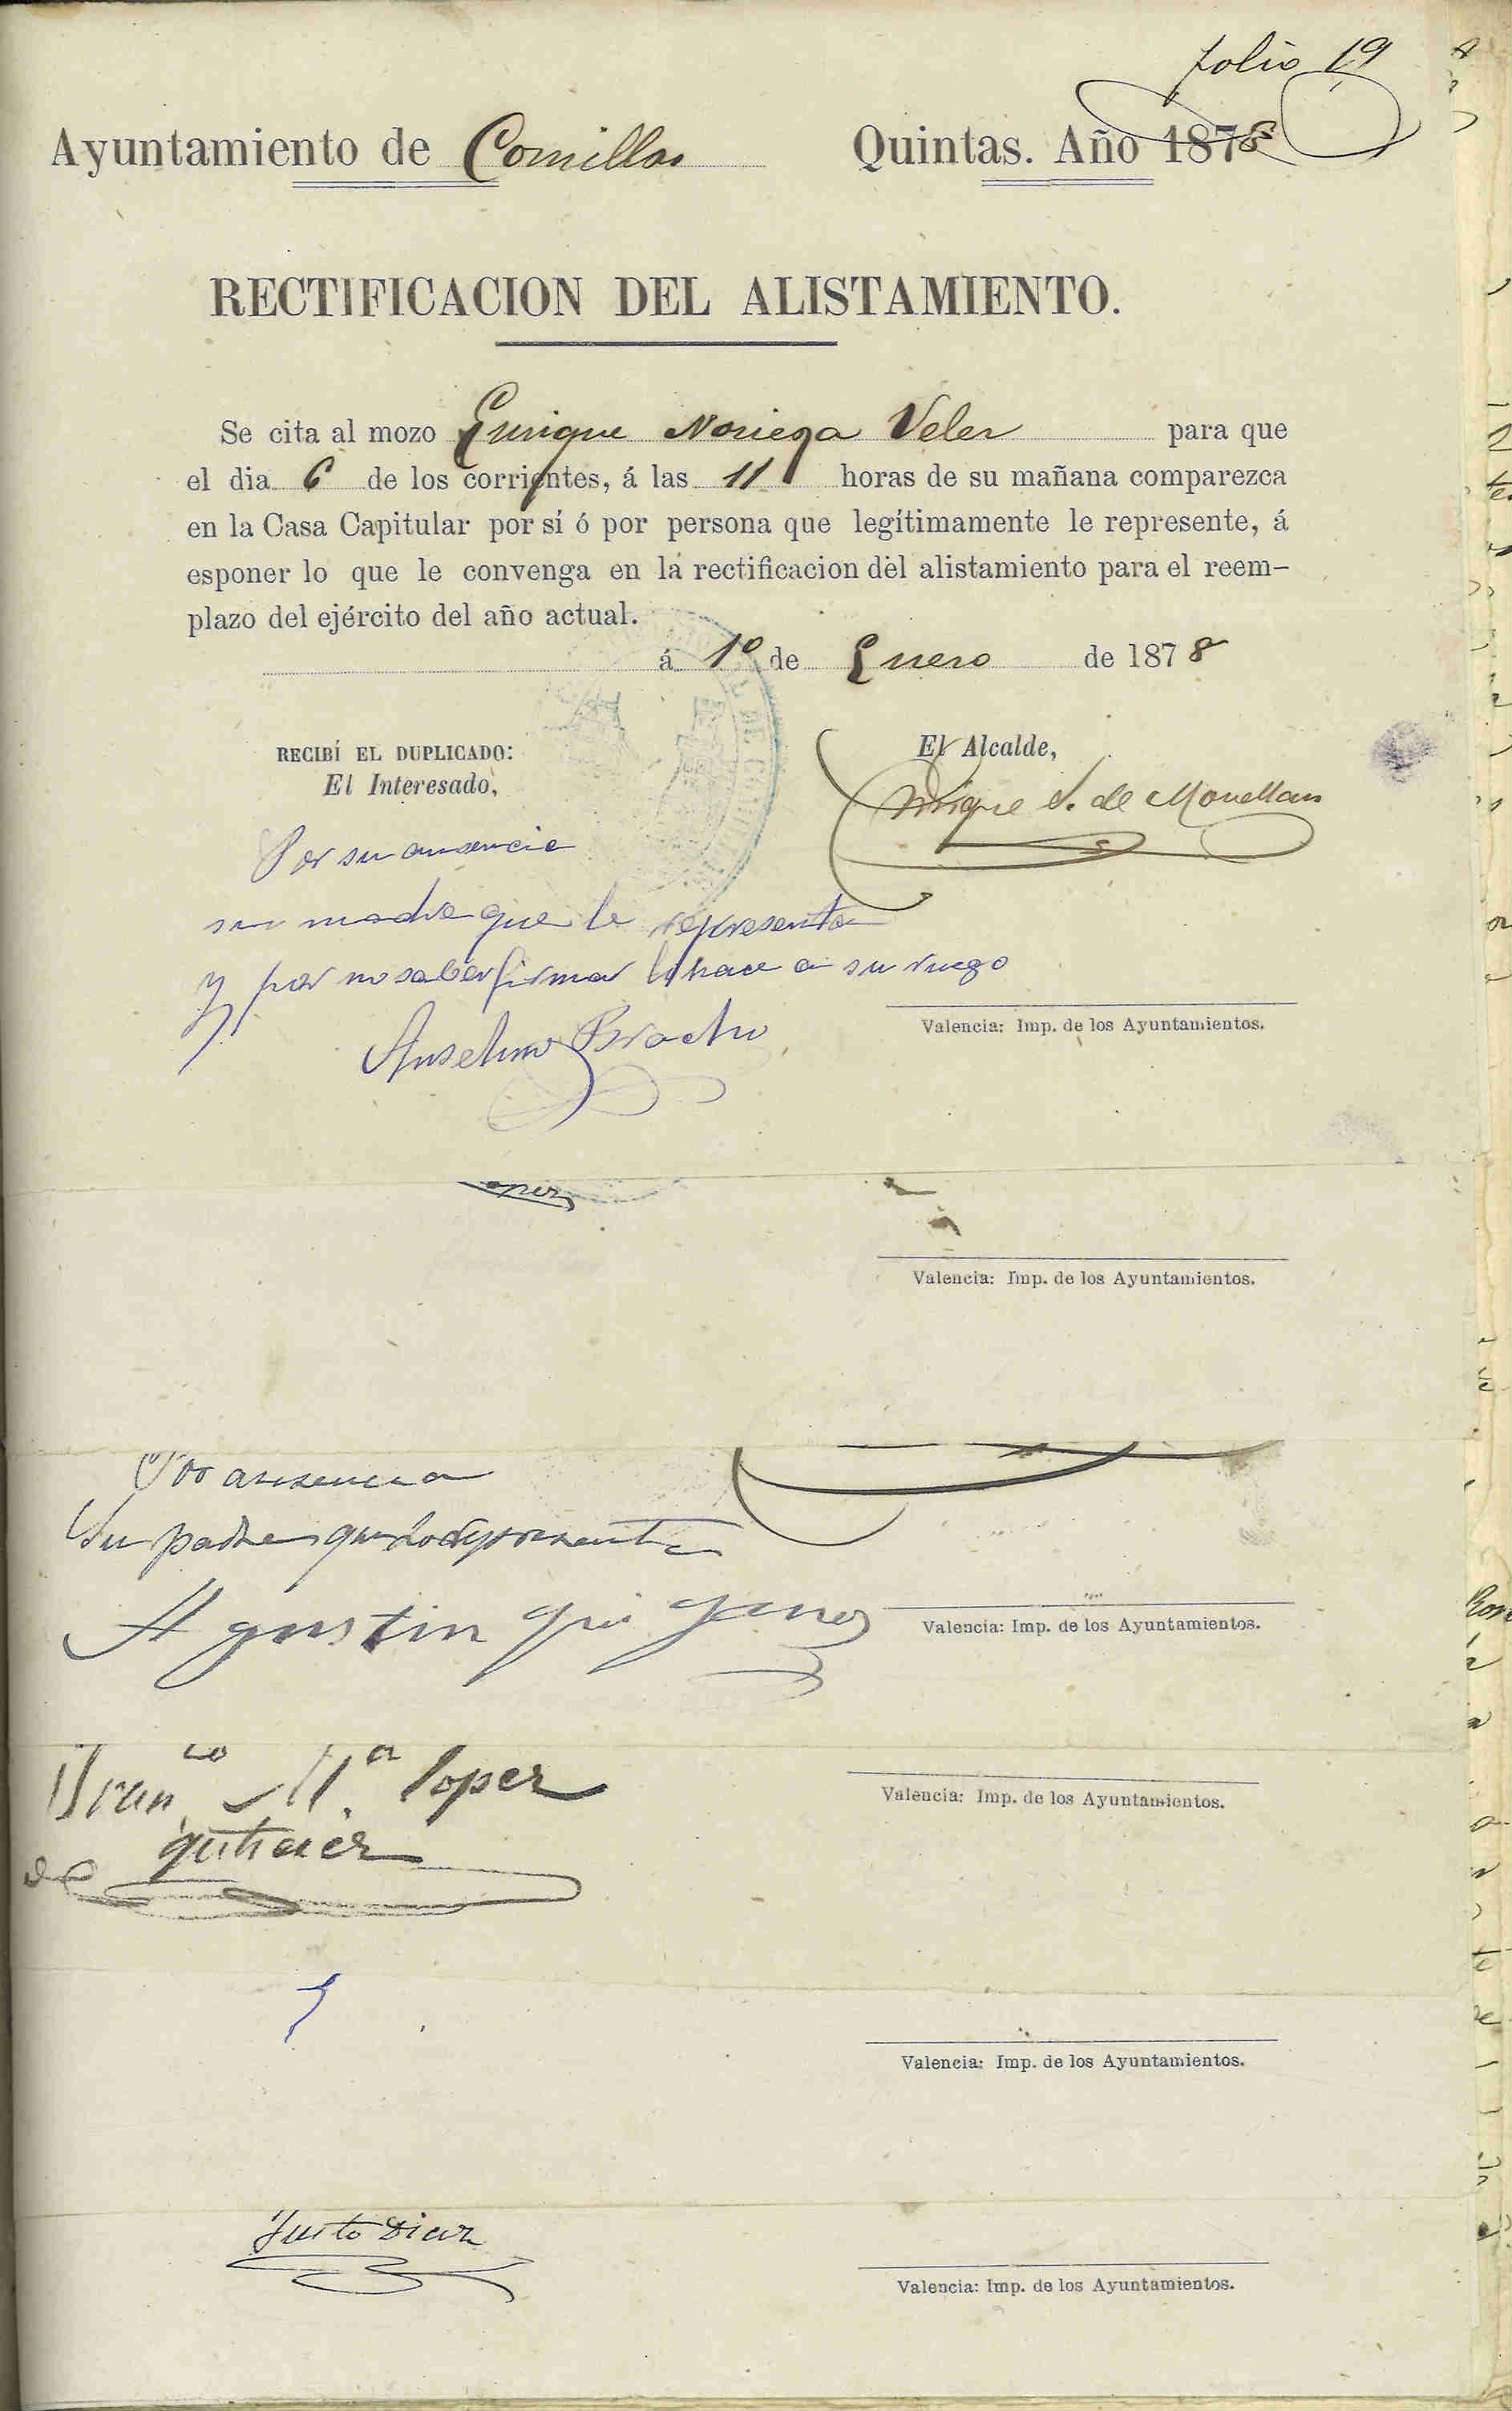 folio 19
Ayuntamiento de Comillas Quintas. Año 1878
RECTIFICACION DEL ALISTAMIENTO.
Se cita al mozo Enrique Noriega Velez para que
el dia 6 de los corrientes, á las 11 horas de su mañana comparezca
en la Casa Capitular por sí ó por persona que legítimamente le represente, á
esponer lo que le convenga en la rectificacion del alistamiento para el reem-
plazo del ejército del año actual.
á 1º de Enero de 1878
RECIBÍ EL DUPLICADO:
El Interesado,
El Alcalde,
Enrique S. de Movellan
Por su ausencia
su madre que le representa
y por no saber firmar lo hace a su ruego
Anselmo Bracho
Valencia: Imp. de los Ayuntamientos.
Valencia: Imp. de los Ayuntamientos.
Por ausencia
Su padre que lo representa
Agustin qui janos
Valencia: Imp. de los Ayuntamientos.
Franco Mª lopez
de
Valencia: Imp. de los Ayuntamientos.
Valencia: Imp. de los Ayuntamientos.
Justo Diaz
Valencia: Imp. de los Ayuntamientos.